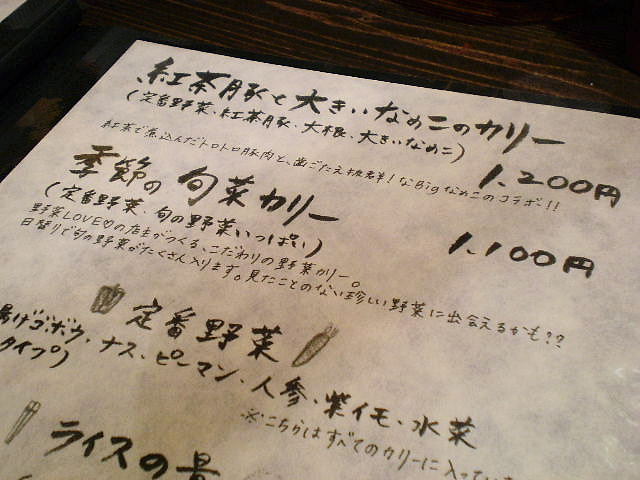 紅茶豚と大きいなめこのカリー
(定番野菜・紅茶豚・大根・大きいなめこ)
1,200円
紅茶で煮込んだトロトロ豚肉と、歯ごたえ抜群!なBigなめこのコラボ!!
季節の旬菜カリー
(定番野菜・旬の野菜いっぱい)
1,100円
野菜LOVE♡の店主がつくる、こだわりの野菜カリー。
日替りで旬の野菜がたくさん入ります。見たことのない珍しい野菜に出会えるかも??
定番野菜
揚げゴボウ、ナス、ピーマン・人参、紫イモ・水菜
タイプ)
※こちらはすべてのカリーに入ってい
ライスの量